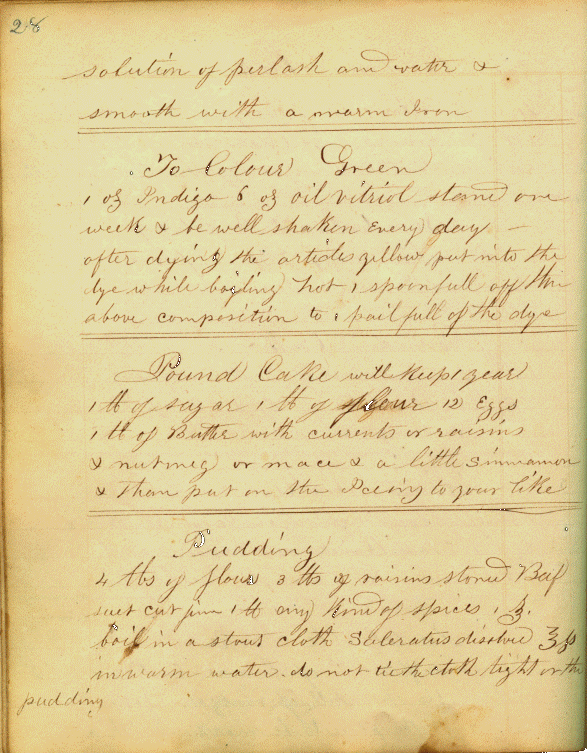 28
solution of perlash and water &
smooth with a warm Iron
To Colour Green
1 oz Indigo 6 oz oil vitriol stand one
week & be well shaken every day –
after dying the articles yellow put into the
dye while boyling hot 1 spoonfull off the
above composition to 1 pail full of the dye
Pound Cake will keep 1 year
1 lb of sugar 1 lb of flour 12 Eggs
1 lb of Butter with currents or raisins
& nutmeg or mace & a little Sinnamon
& than put on the Iceing to your like
Pudding
4 lbs of flour 3 lbs of raisins stoned Beef
suet cut fine 1 lb any kind of spices 1
boil in a stout cloth Saleratus disolved
in warm water. do not tie the cloth tight or the
pudding